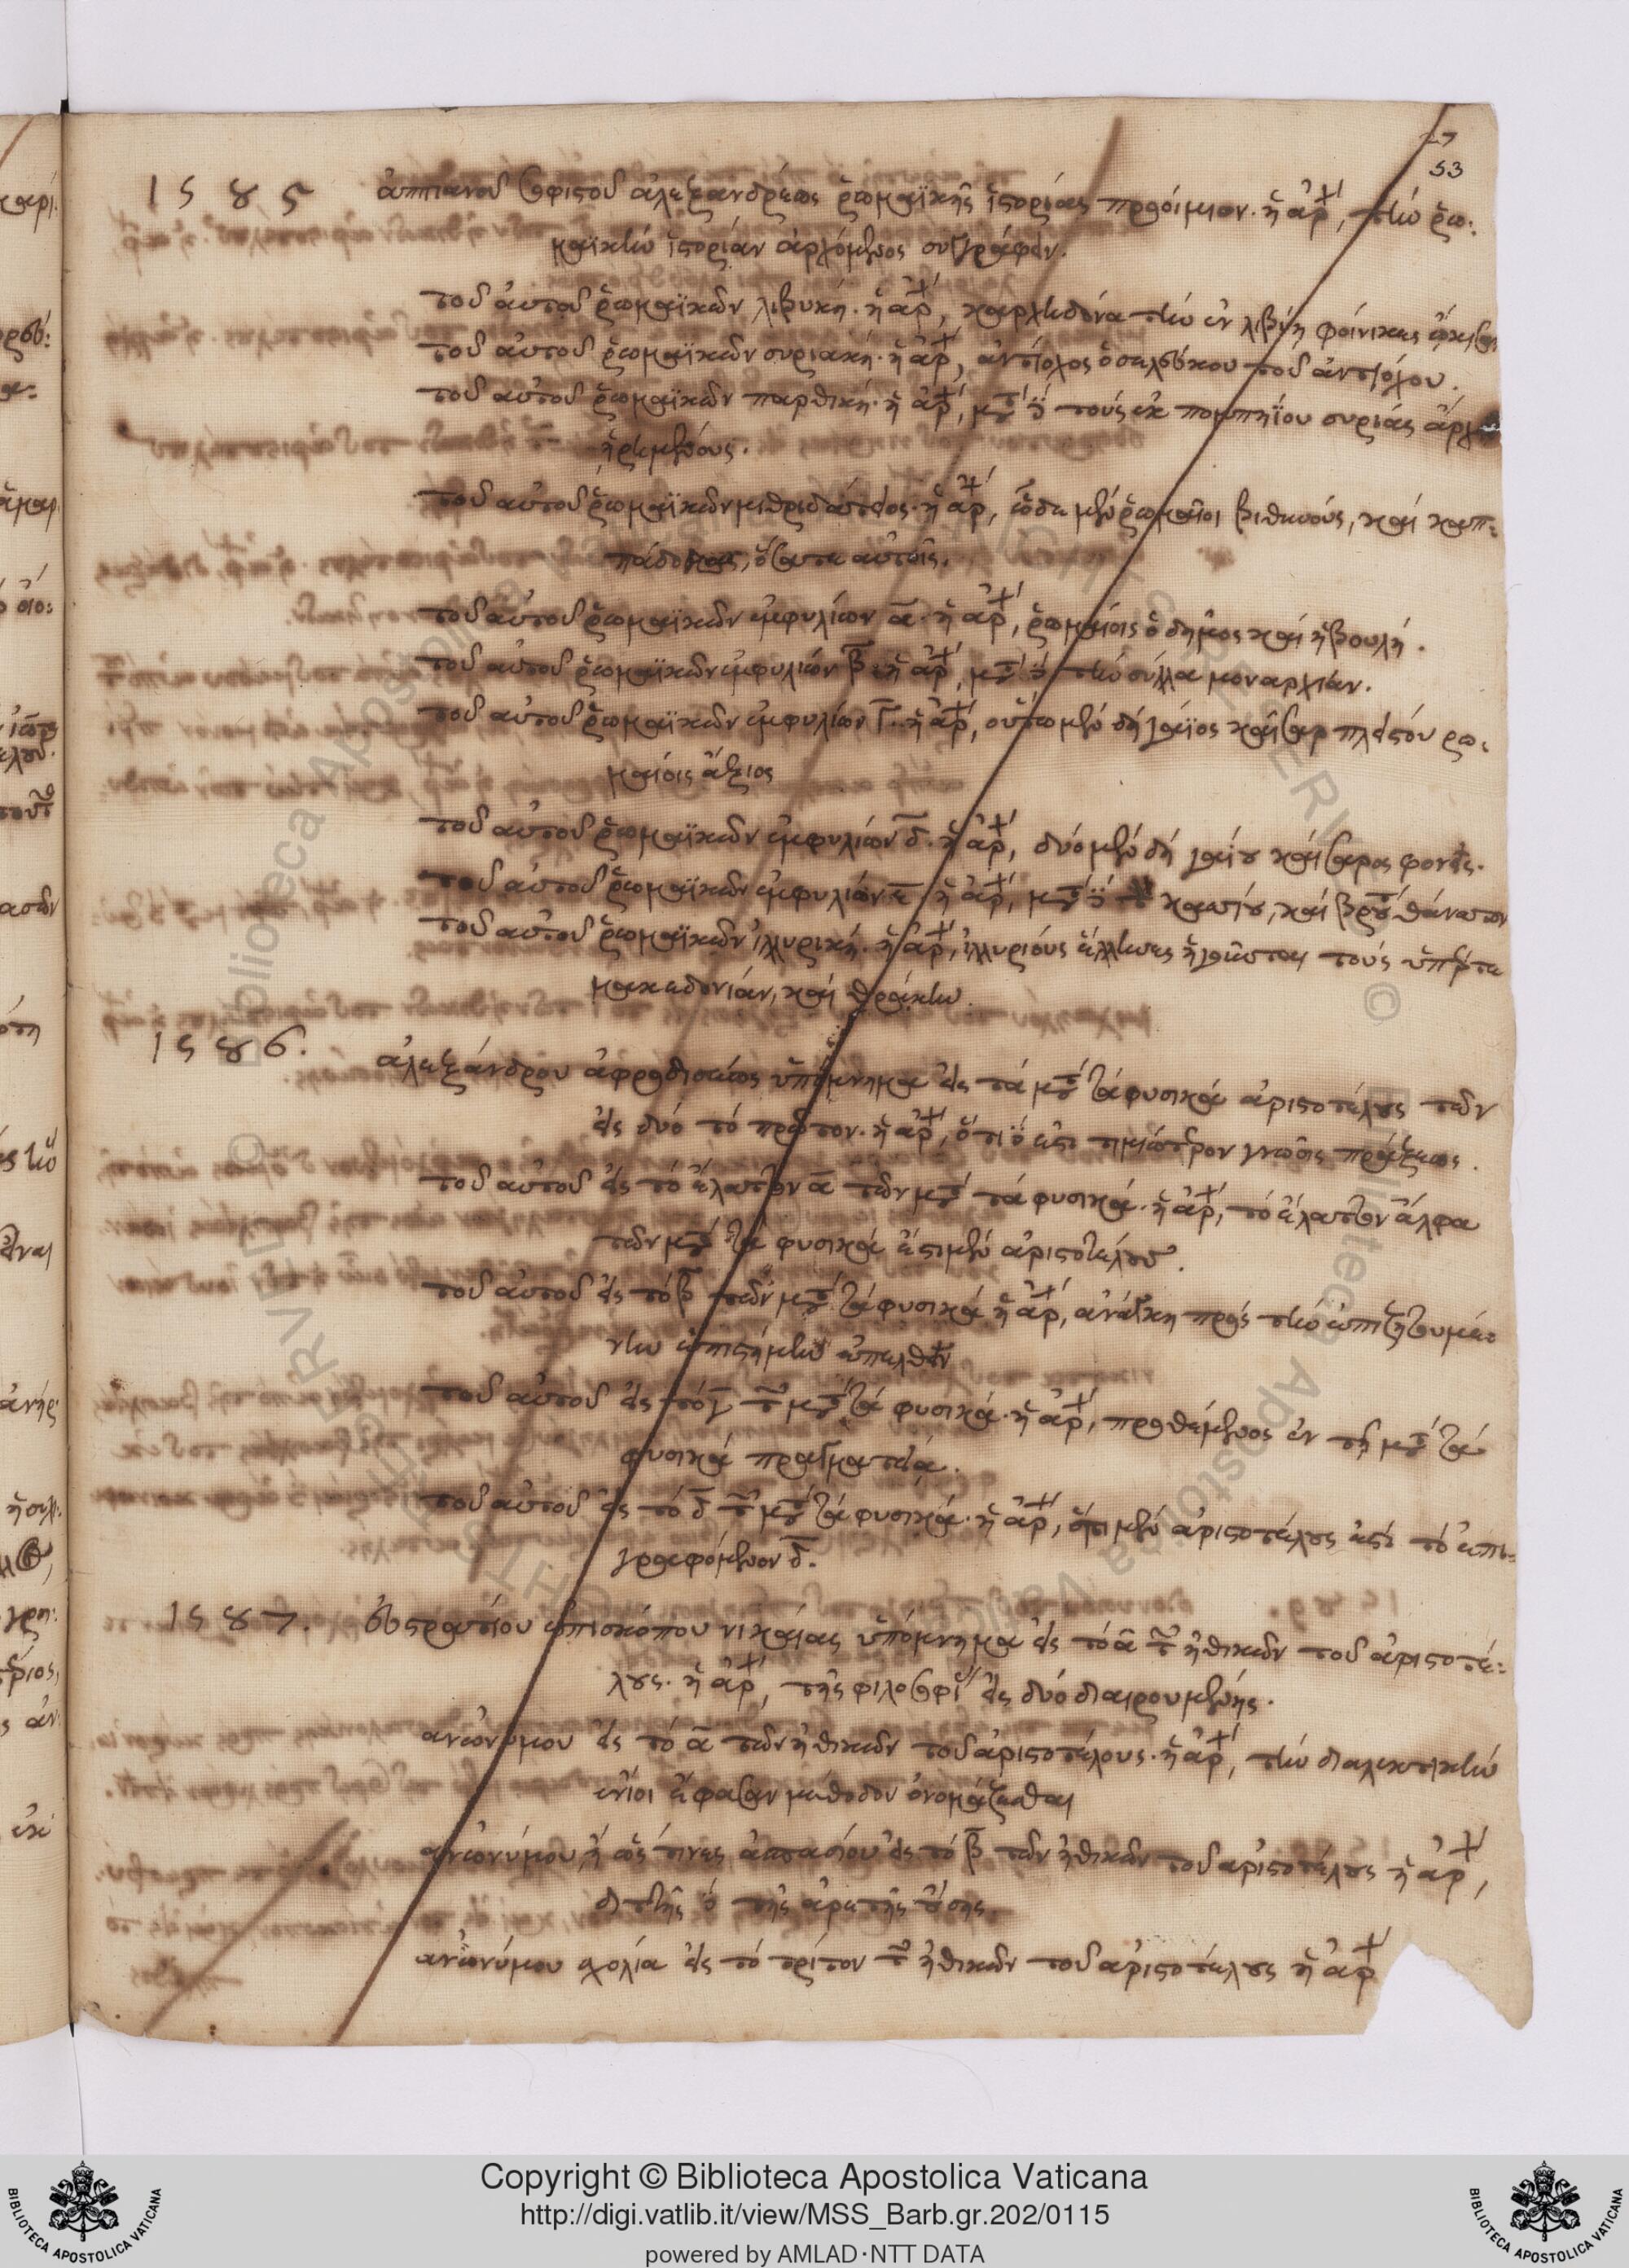 27
53
1585 ἀππιανοῦ σοφιστοῦ ἀλεξανδρέως ῥωμαϊκῆς ἱστορίας προοίμιον. ἡ ἀρχ, τὴν ῥω:
μαϊκὴν ἱστορίαν ἀρχόμενος συγγράφειν.
τοῦ αὐτοῦ ῥωμαϊκῶν λιβυκή. ἡ ἀρχ, καρχηδόνα τὴν ἐν λιβύη φοίνικες ὤκισαν
τοῦ αὐτοῦ ῥωμαϊκῶν συριακή. ἡ ἀρχ, ἀντίοχος ὁ σελεύκου τοῦ ἀντιόχου.
τοῦ αὐτοῦ ῥωμαϊκῶν παρθική. ἡ ἀρχ, μετὰ δὲ τοὺς ἐκ πομπηΐου συρίας ἄρχειν
ἡρημένους.
τοῦ αὐτοῦ ῥωμαϊκῶν μιθριδάτειος. ἡ ἀρχ, ὧδε μὲν ῥωμαῖοι βιθυνούς, καὶ καπ:
πάδοκας, ὅσα τε αὐτοῖς.
τοῦ αὐτοῦ ῥωμαϊκῶν ἐμφυλίων α. ἡ ἀρχ, ῥωμαίοις ὁ δῆμος καὶ ἡ βουλή.
τοῦ αὐτοῦ ῥωμαϊκῶν ἐμφυλίων β. ἡ ἀρχ, μετὰ δὲ τὴν σύλλα μοναρχίαν.
τοῦ αὐτοῦ ῥωμαϊκῶν ἐμφυλίων Γ. ἡ ἀρχ, οὕτω μὲν δὴ γάϊος καῖσαρ πλείστου ρω:
μαίοις ἄξιος
τοῦ αὐτοῦ ῥωμαϊκῶν ἐμφυλίων δ. ἡ ἀρχ, δύο μὲν δὴ γαΐου καίσαρος φονεῖς.
τοῦ αὐτοῦ ῥωμαϊκῶν ἐμφυλίων ε. ἡ ἀρχ, μετὰ δὲ τὸν κασίου, καὶ βρούτου θάνατον
τοῦ αὐτοῦ ῥωμαϊκῶν ἰλλυρική. ἡ ἀρχ, ἰλλυριοὺς ἕλληνες ἡγοῦνται τοὺς ὑπέρ τε
μακεδονίαν, καὶ θράκην.
1586. ἀλεξάνδρου ἀφροδισιέως ὑπόμνημα εἰς τὰ μετὰ τὰ φυσικὰ ἀριστοτέλους τῶν
εἰς δύο τὸ πρῶτον. ἡ ἀρχ, ὅτι δέ ἐστι τιμιώτερον γνῶσις πράξεως.
τοῦ αὐτοῦ εἰς τὸ ἔλαττον α τῶν μετὰ τὰ φυσικά. ἡ ἀρχ, τὸ ἔλαττον ἄλφα
τῶν μετὰ τὰ φυσικὰ ἐστι μὲν ἀριστοτέλους.
τοῦ αὐτοῦ εἰς τὸ β τῶν μετὰ τὰ φυσικά ἡ ἀρχ, ἀνάγκη πρὸς τὴν ἐπιζητουμέ:
νην ἐπιστήμην ἐπελθεῖν
τοῦ αὐτοῦ εἰς τὸ γ τῶν μετὰ τὰ φυσικά. ἡ ἀρχ, προθέμενος ἐν τῆ μετὰ τὰ
φυσικὰ πραγματεία.
τοῦ αὐτοῦ εἰς τὸ δ τῶν μετὰ τὰ φυσικά. ἡ ἀρχ, ὅτι μὲν ἀριστοτέλους ἐστὶ τὸ ἐπι:
γραφόμενον δ.
1587. εὐστρατίου ἐπισκόπου νικαίας ὑπόμνημα εἰς τὸ α τῶν ἠθικῶν τοῦ ἀριστοτέ:
λους. ἡ ἀρχ, τῆς φιλοσοφίας εἰς δύο διαιρουμένης.
ἀνωνύμου εἰς τὸ α τῶν ἠθικῶν τοῦ ἀριστοτέλους. ἡ ἀρχ, τὴν διαλεκτικὴν
ἔνιοι ἔφασαν μέθοδον ὀνομάζεσθαι
ἀνωνύμου, ἢ ὥς τινες ἀσπασίου εἰς τὸ β τῶν ἠθικῶν τοῦ ἀριστοτέλους ἡ ἀρχ,
διττῆς δὲ τῆς ἀρετῆς οὔσης
ἀνωνύμου σχολία εἰς τὸ τρίτον τῶν ἠθικῶν τοῦ ἀριστοτέλους ἡ ἀρχ
Copyright © Biblioteca Apostolica Vaticana
http://digi.vatlib.it/view/MSS_Barb.gr.202/0115
powered by AMLAD·NTT DATA